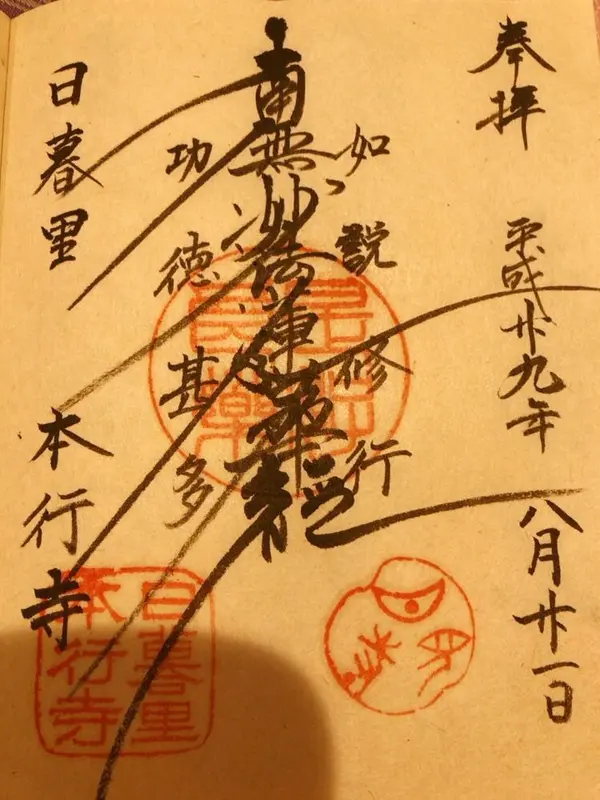 奉拝
平成廿九年
八月廿一日
如説修行
南無妙法蓮華経
功徳甚多
日暮里
本行寺
是好
良藥
日暮里
本行寺